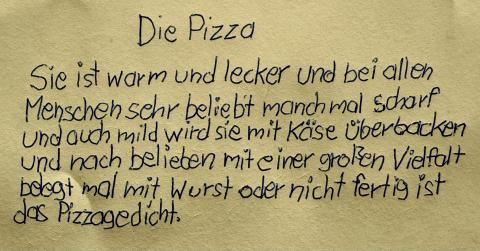 Die Pizza
Sie ist warm und lecker und bei allen
Menschen sehr beliebt manchmal scharf
und auch mild wird sie mit Käse überbacken
und nach belieben mit einer großen Vielfalt
belegt mal mit Wurst oder nicht fertig ist
das Pizzagedicht.